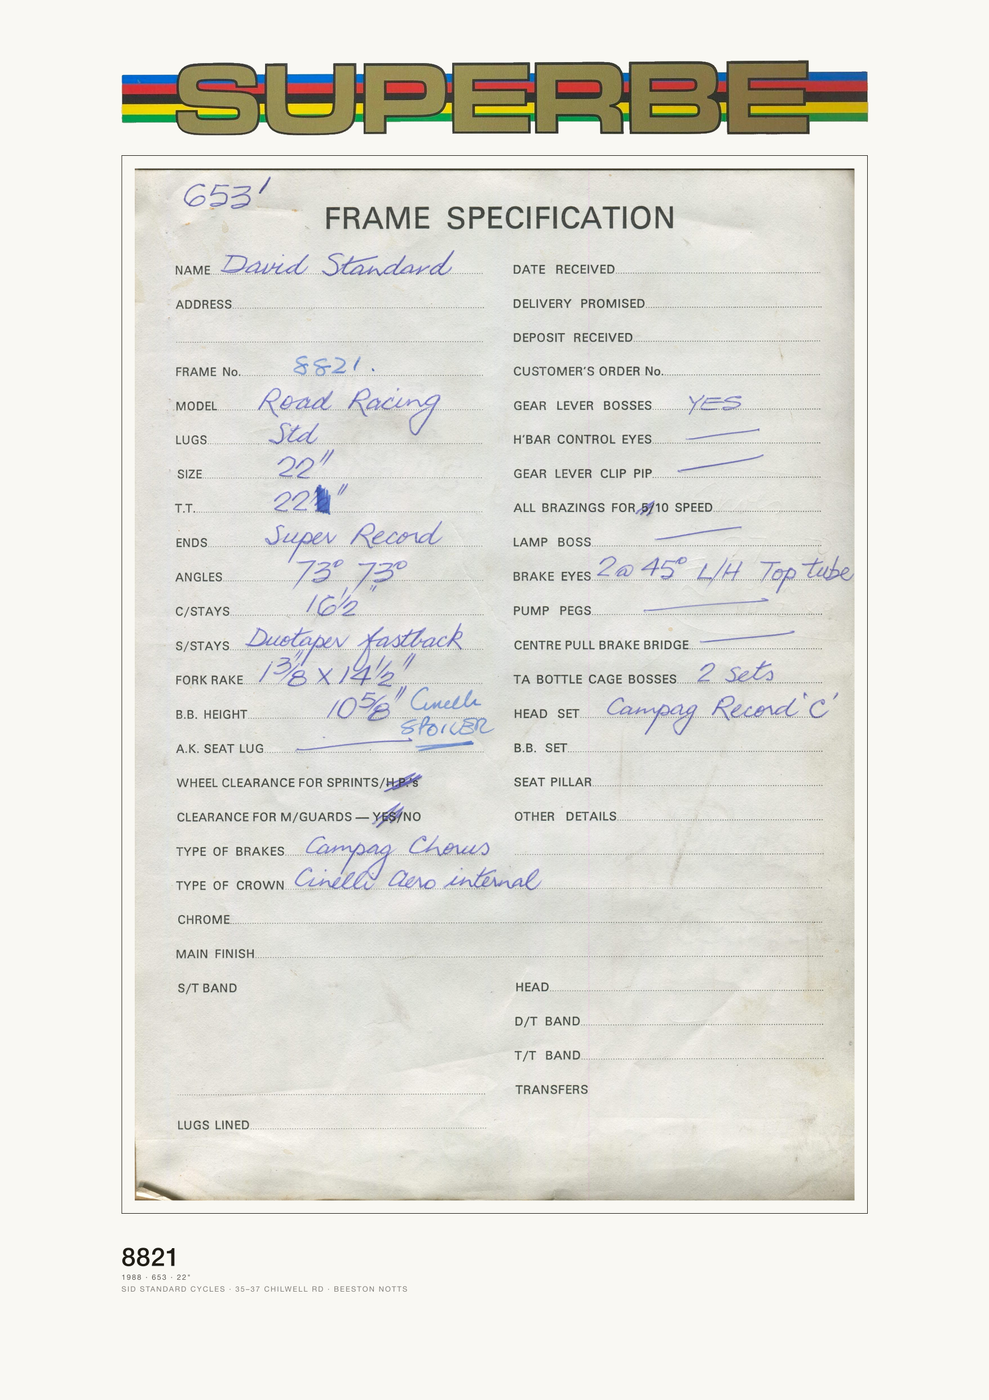 SUPERBE
653'
FRAME SPECIFICATION
NAME David Standard
ADDRESS
FRAME No. 8821.
MODEL Road Racing
LUGS Std
SIZE 22"
T.T. 22"
ENDS Super Record
ANGLES 73° 73°
C/STAYS 16½"
S/STAYS Duotaper fastback
FORK RAKE 1 3/8" X 14 1/2"
B.B. HEIGHT 10 5/8" Cinelli
SPOILER
A.K. SEAT LUG
WHEEL CLEARANCE FOR SPRINTS/H.P.'s
CLEARANCE FOR M/GUARDS — YES/NO
TYPE OF BRAKES Campag Chorus
TYPE OF CROWN Cinelli Aero internal
CHROME
MAIN FINISH
S/T BAND
LUGS LINED
DATE RECEIVED
DELIVERY PROMISED
DEPOSIT RECEIVED
CUSTOMER'S ORDER No.
GEAR LEVER BOSSES YES
H'BAR CONTROL EYES
GEAR LEVER CLIP PIP
ALL BRAZINGS FOR 5/10 SPEED
LAMP BOSS
BRAKE EYES 2@ 45° L/H Top tube
PUMP PEGS
CENTRE PULL BRAKE BRIDGE
TA BOTTLE CAGE BOSSES 2 sets
HEAD SET Campag Record 'C'
B.B. SET
SEAT PILLAR
OTHER DETAILS
HEAD
D/T BAND
T/T BAND
TRANSFERS
8821
1988 · 653 · 22"
SID STANDARD CYCLES · 35–37 CHILWELL RD · BEESTON NOTTS